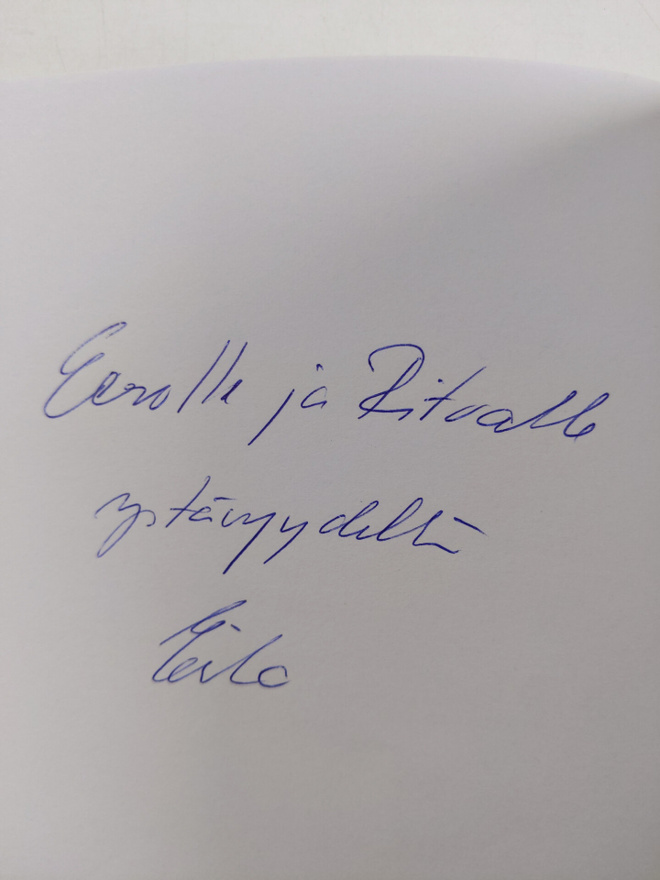 Eerolle ja Ritvalle
ystävyydellä